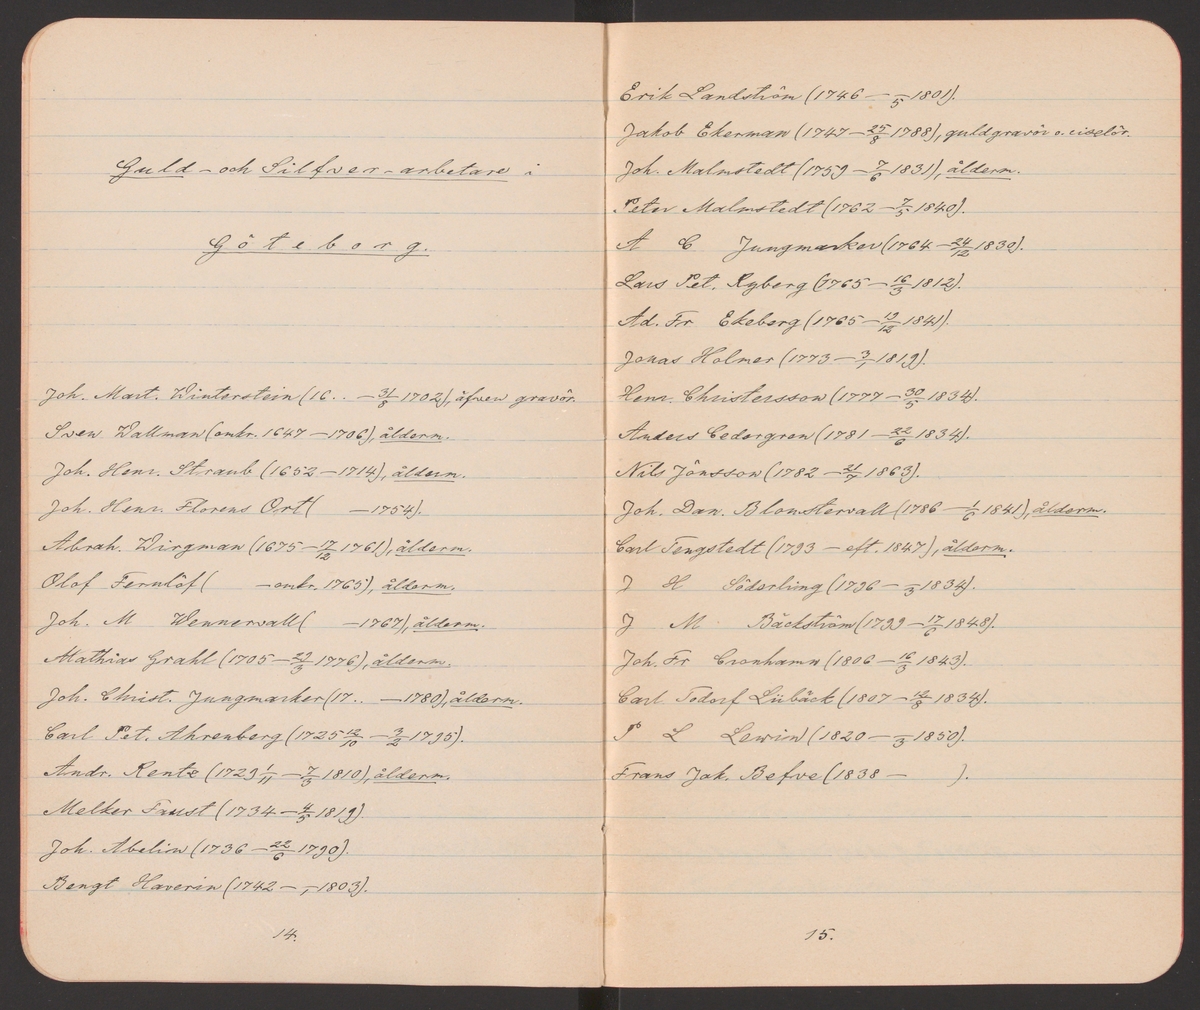 Guld- och Silfver-arbetare i
Göteborg.
Joh. Mart. Winterstein (16.. — 31/8 1702), äfven gravör.
Sven Wallman (omkr. 1647 — 1706), ålderm.
Joh. Henr. Straub (1652 — 1714), ålderm.
Joh. Henr. Florens Ort ( — 1754).
Abrah. Wirgman (1675 — 17/12 1761), ålderm.
Olof Fernlöf ( — omkr. 1765), ålderm.
Joh. M Wennervall ( — 1767), ålderm.
Mathias Grahl (1705 — 29/3 1776), ålderm.
Joh. Christ. Jungmarker (17.. — 1780), ålderm.
Carl Pet. Ahrenberg (1725 12/10 — 3/2 1795).
Andr. Rentz (1729 1/11 — 7/3 1810), ålderm.
Melker Faust (1734 — 4/5 1819)
Joh. Abelin (1736 — 22/6 1790).
Bengt Haverin (1742 — /1 1803).
14.
Erik Landström (1746 — /5 1801).
Jakob Ekerman (1747 — 25/8 1788), guldgravör o. ciselör.
Joh. Malmstedt (1759 — 7/6 1831), ålderm.
Peter Malmstedt (1762 — 7/5 1840).
A C Jungmarker (1764 — 24/12 1830).
Lars Pet. Ryberg (1765 — 16/3 1812).
Ad. Fr Ekeberg (1765 — 19/12 1841).
Jonas Holmer (1773 — 3/1 1819).
Henr. Christersson (1777 — 30/5 1834).
Anders Cedergren (1781 — 22/6 1834).
Nils Jönsson (1782 — 21/7 1863).
Joh. Dan. Blomstervall (1786 — 1/6 1841), ålderm.
Carl Tengstedt (1793 — eft. 1847), ålderm.
J H Söderling (1796 — /3 1834).
J M Bäckström (1799 — 17/6 1848).
Joh. Fr Cronhamn (1806 — 16/3 1843).
Carl Todorf Lübäck (1807 — 12/8 1834).
P L Lewin (1820 — /3 1850).
Frans Jak. Befve (1838 — ).
15.